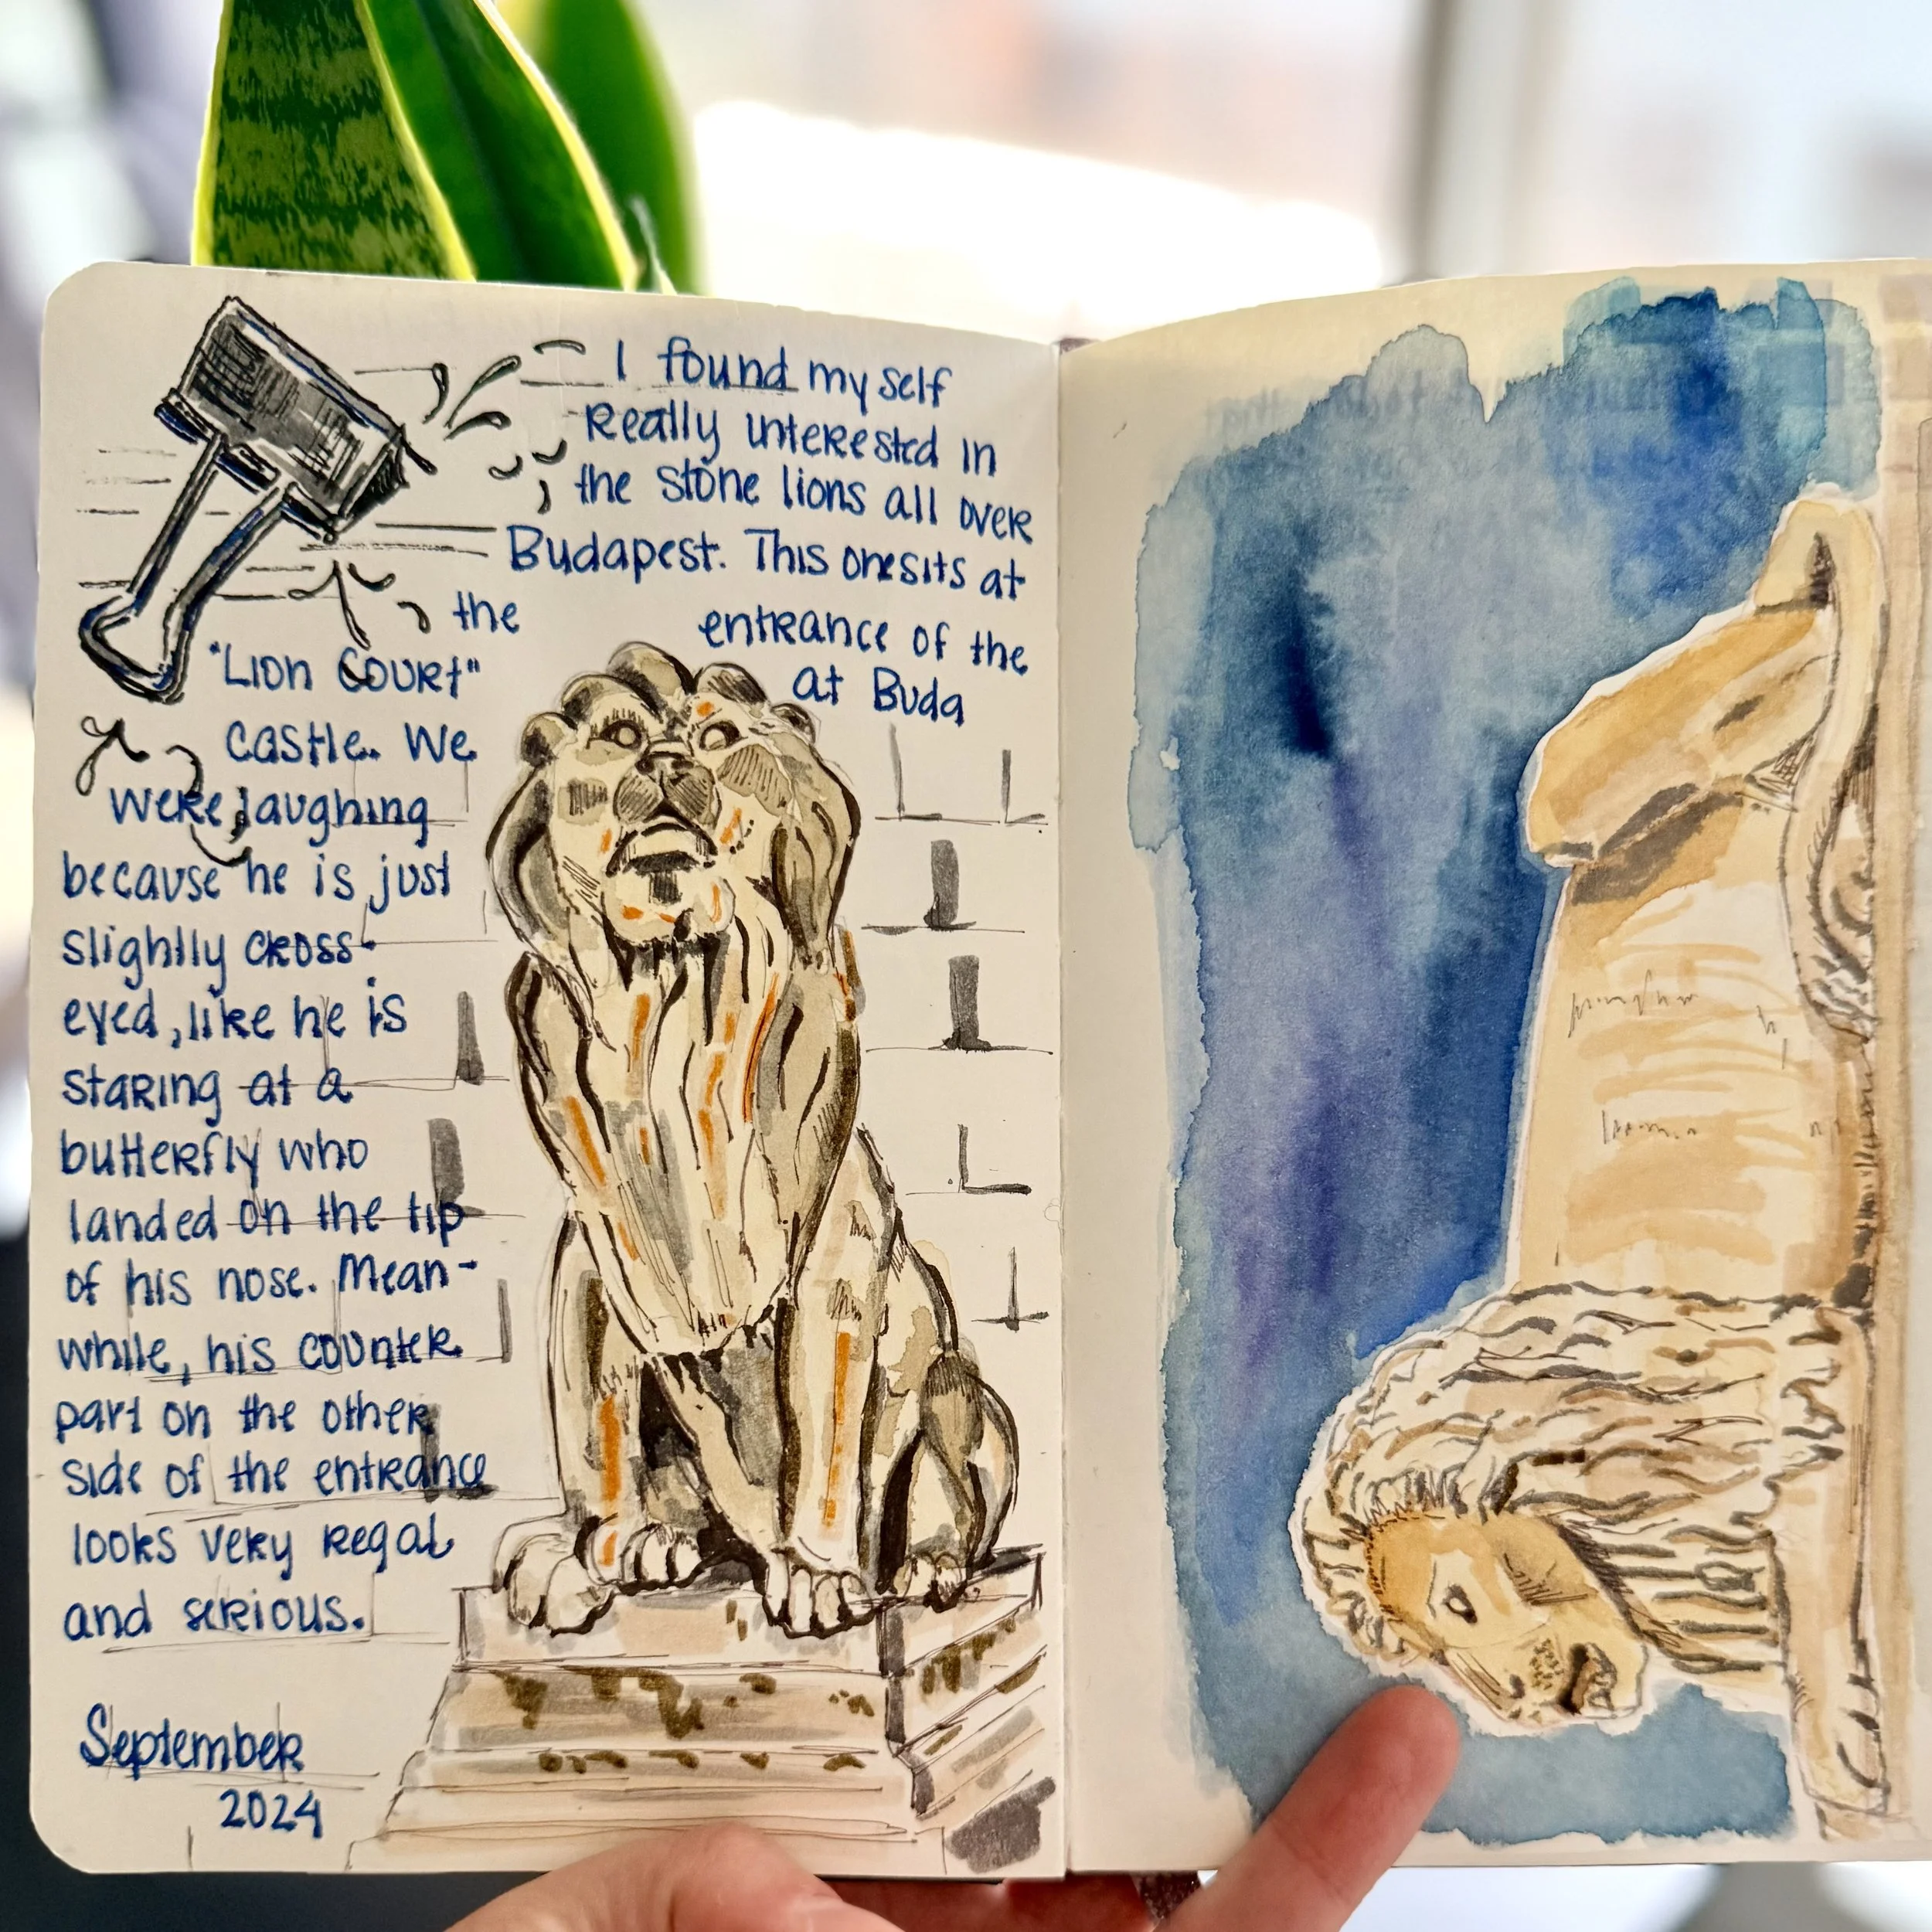 I found my self
really interested in
the stone lions all over
Budapest. This one sits at
the entrance of the
"Lion Court" at Buda
castle. We
were laughing
because he is just
slightly cross-
eyed, like he is
staring at a
butterfly who
landed on the tip
of his nose. Mean-
while, his counter
part on the other
side of the entrance
looks very regal
and serious.
September
2024